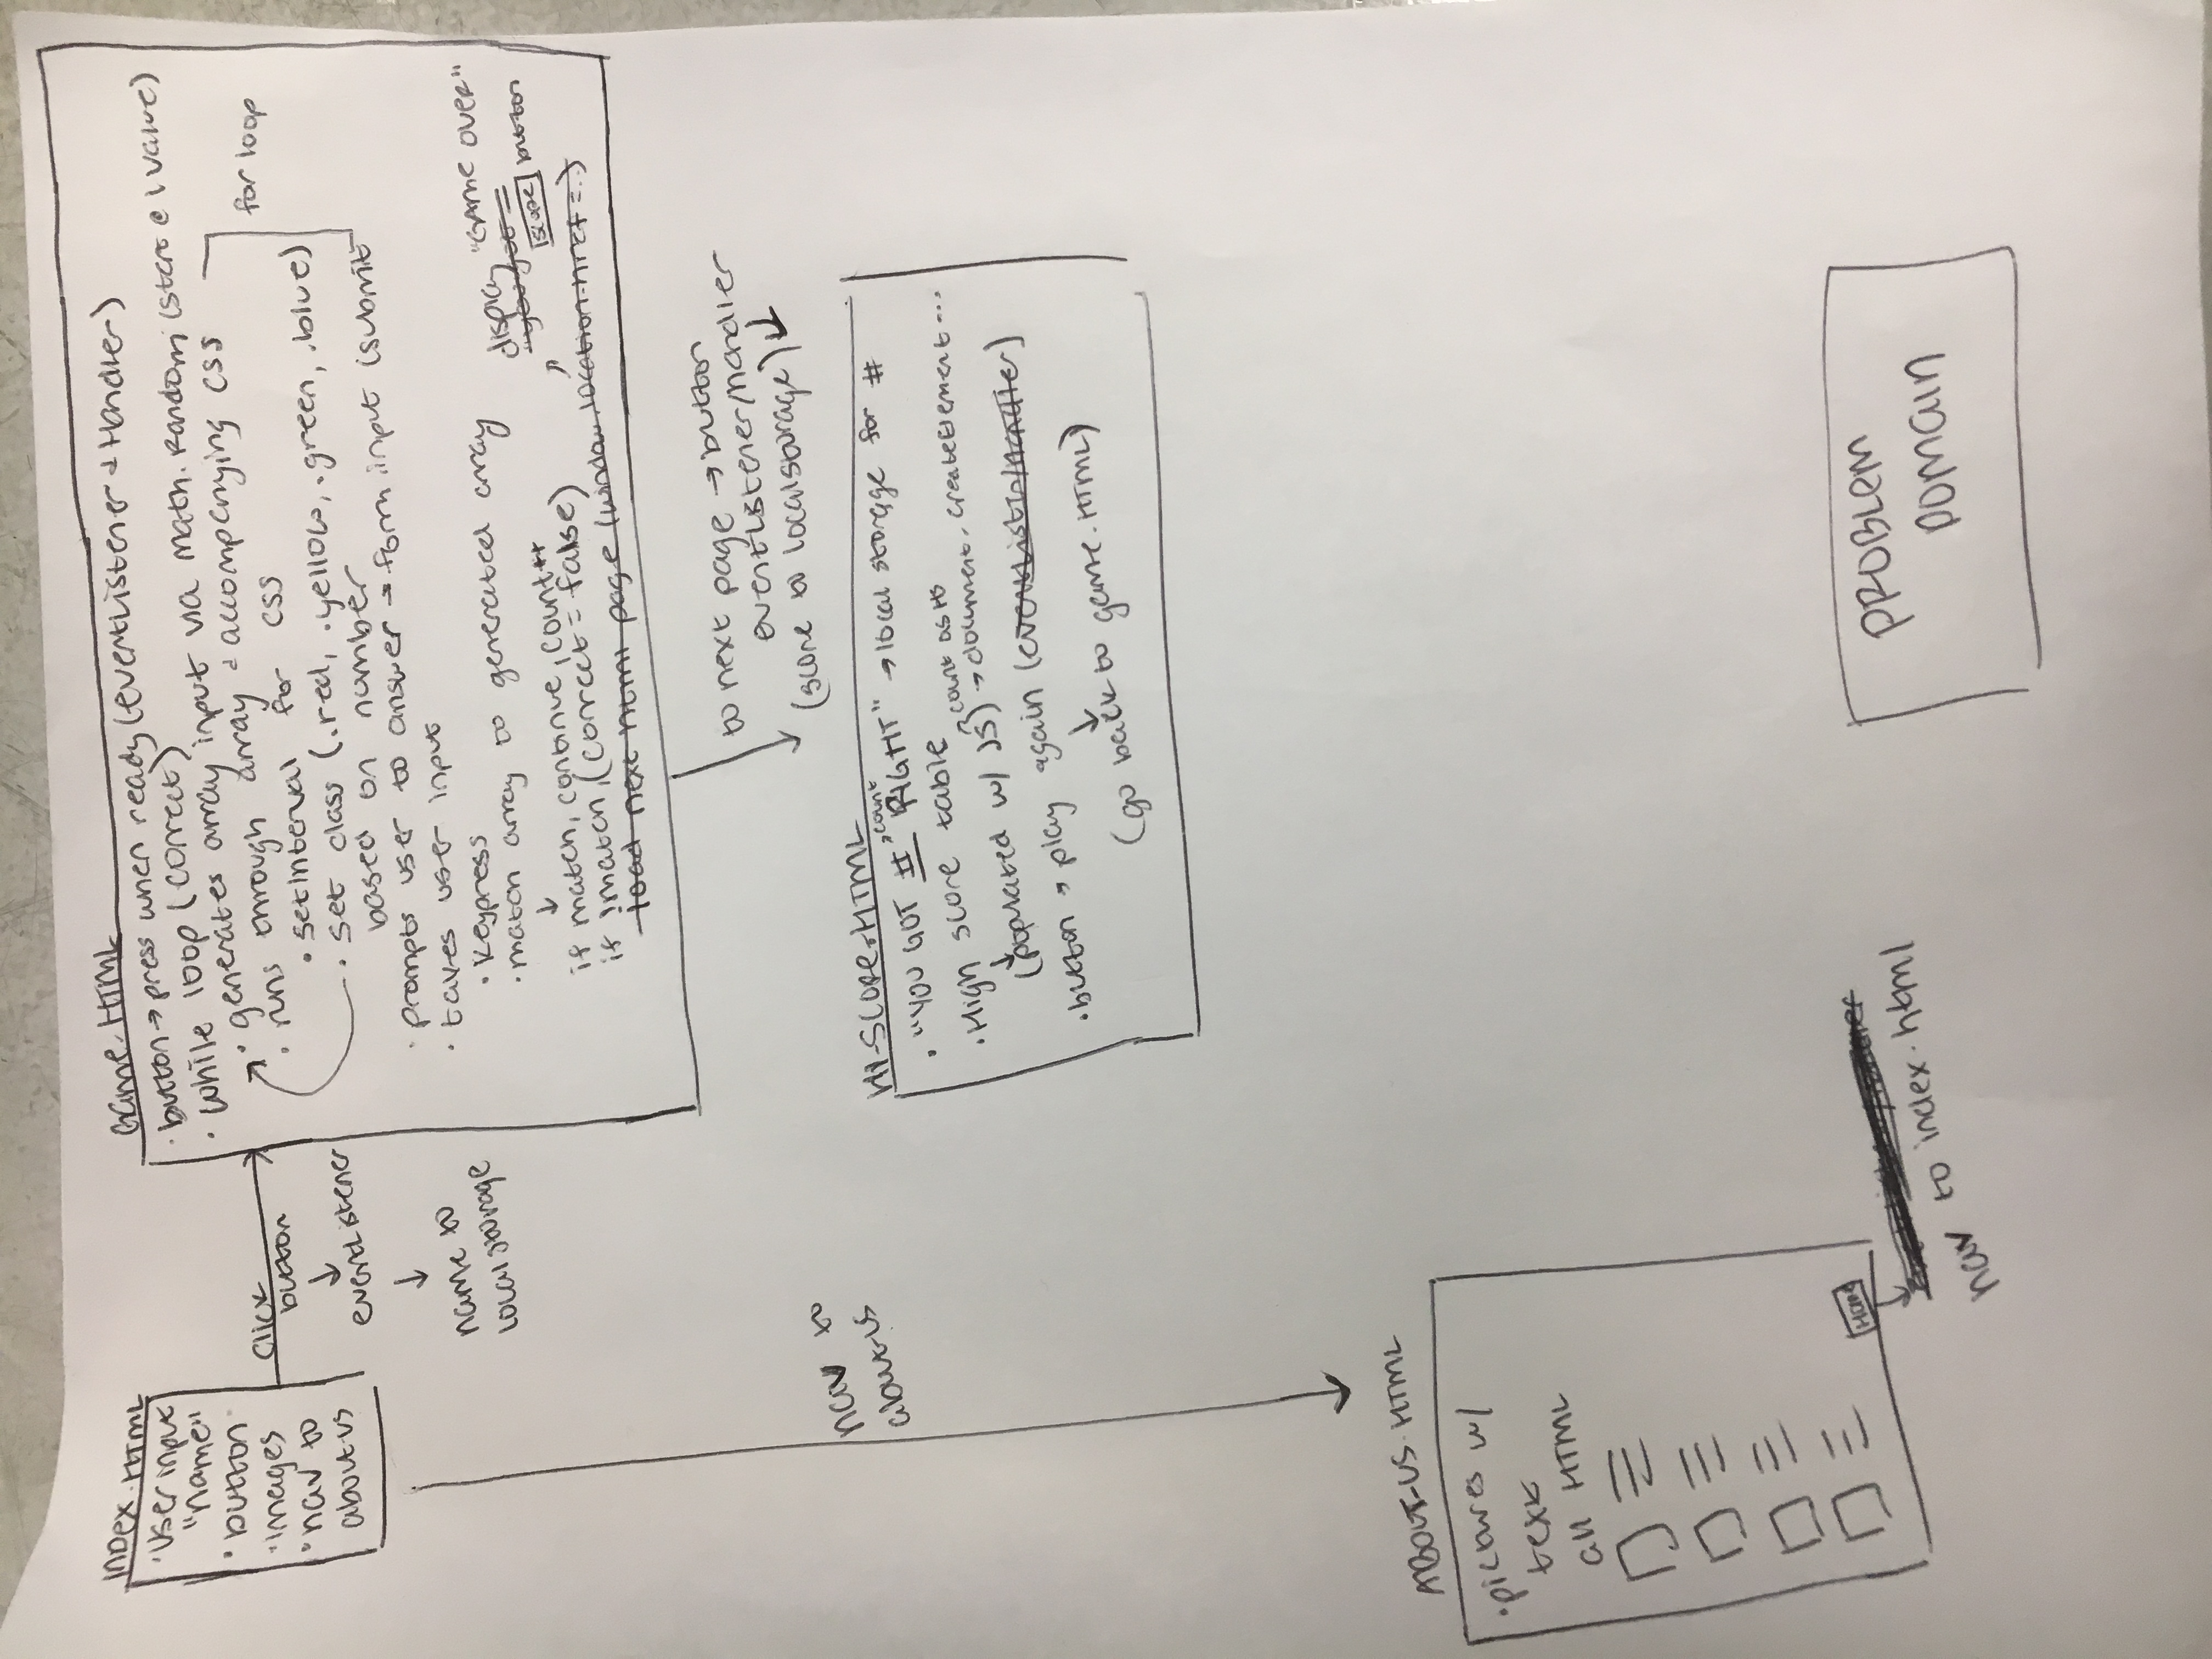 INDEX.HTML
• User input
"name"
• button
• images
• nav to
about-us
click
button
↓
eventListener
↓
name to
local storage
Game.HTML
• button → press when ready (eventListener & Handler)
• while loop (correct)
• generates array input via math.random (start @ 1 value)
• runs through array & accompanying css
• setInterval for css
• set class (.red, .yellow, .green, .blue)
based on number
for loop
• prompts user to answer → form input (submit
• takes user input
• keypress
• match array to generated array
↓
if match, continue, count++
if !match, (correct = false)
load next html page (window.location.href = ..)
display "GAME OVER"
"you got =
score button
to next page → button
eventListener/handler
(score to localstorage) ↓
HI-SCORE.HTML
• "YOU GOT # RIGHT" → local storage for #
count
• High score table
↓
(populated w/ JS) → document.createElement...
count as HS
• button → play again (eventListn/handler)
↓
(go back to game.HTML)
nav to
about-us
ABOUT-US.HTML
• pictures w/
text
all HTML
HOME
↓
nav to index.html
PROBLEM
DOMAIN